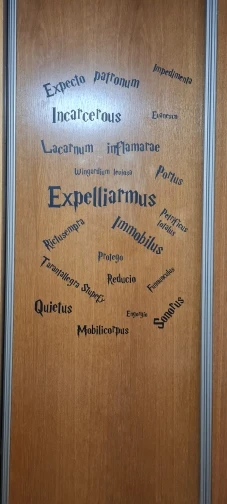 Impedimenta
Expecto patronum
Incarcerous
Lacarnum inflamarae
Wingardium leviosa
Portus
Expelliarmus
Petrificus
totalus
Rictusempra
Immobilus
Protego
Tarantallegra Stupefy
Reducio
Furnunculus
Quietus
Sonorus
Mobilicorpus